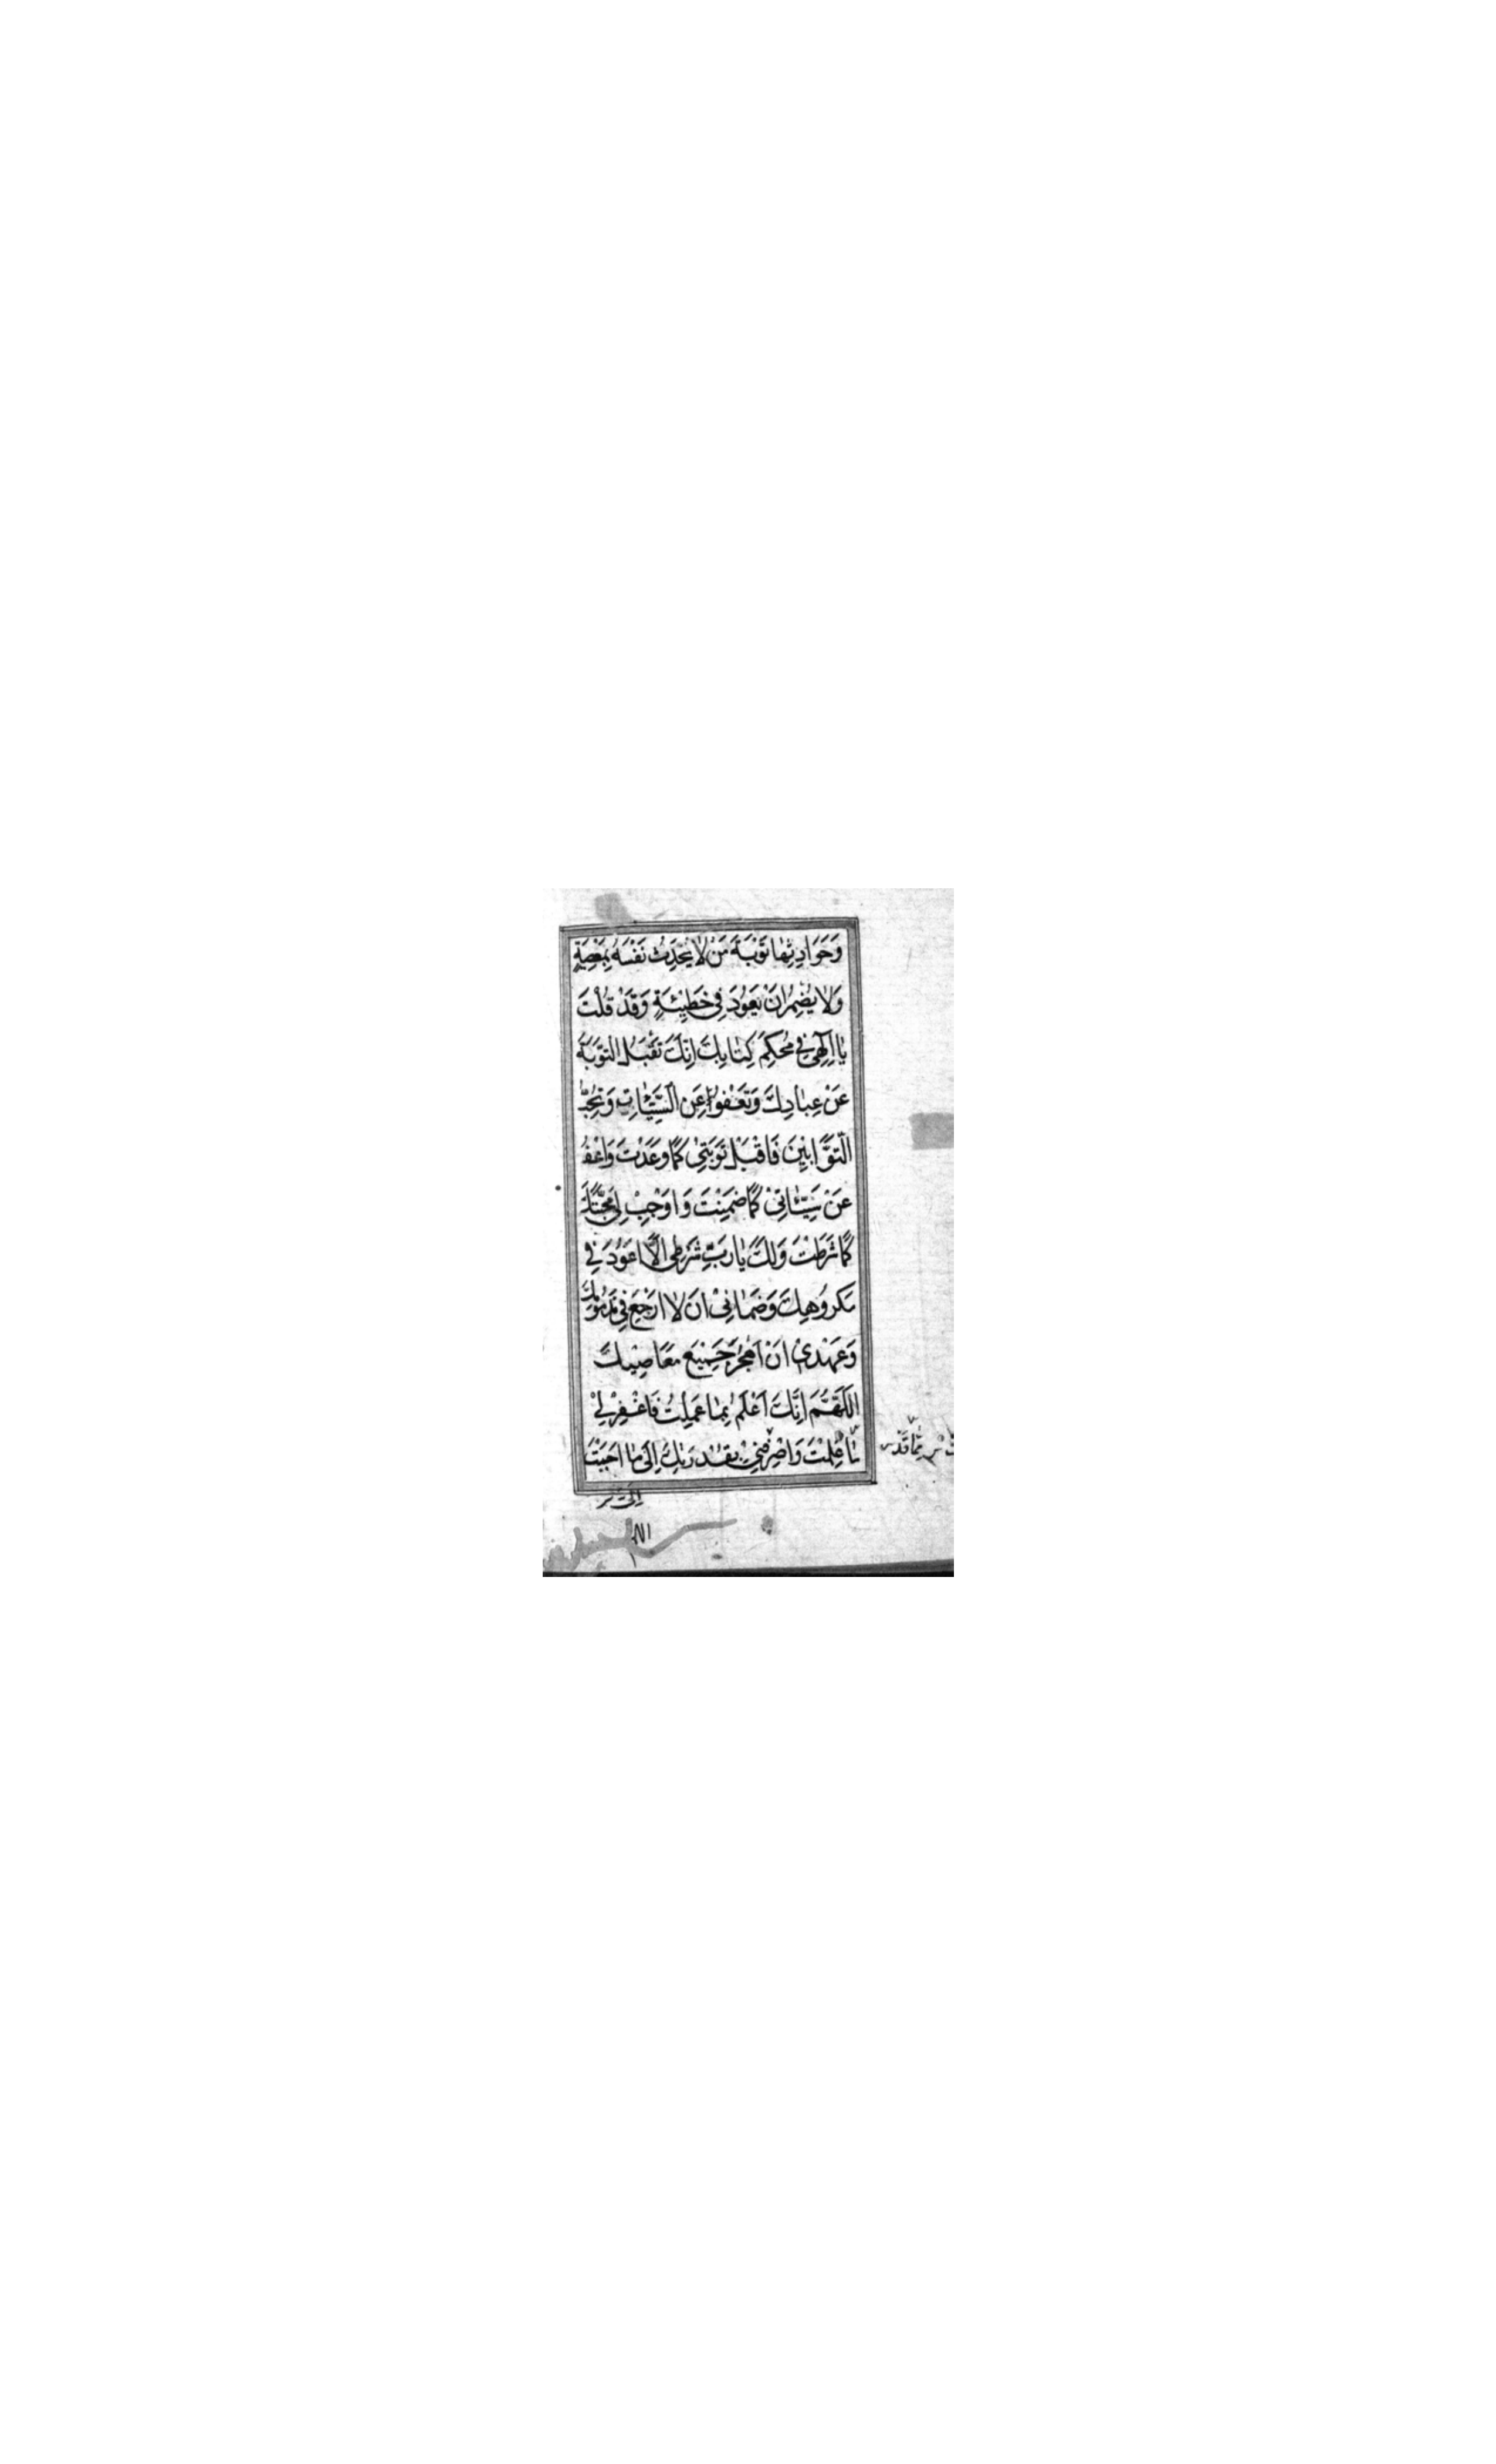 وَحَوَادِثِهَا تَوْبَةَ مَنْ لَا يُحَدِّثُ نَفْسَهُ بِمَعْصِيَةٍ
وَلَا يُضْمِرُ اَنْ يَعُودَ فِي خَطِيْئَةٍ وَقَدْ قُلْتَ
يَا اِلٰهِي فِي مُحْكَمِ كِتَابِكَ اِنَّكَ تَقْبَلُ التَّوْبَةَ
عَنْ عِبَادِكَ وَتَعْفُوا عَنِ السَّيِّئَاتِ وَتُحِبُّ
التَّوَّابِيْنَ فَاقْبَلْ تَوْبَتِي كَمَا وَعَدْتَ وَاعْفُ
عَنْ سَيِّئَاتِيْ كَمَا ضَمِنْتَ وَاَوْجِبْ لِي مَحَبَّتَكَ
كَمَا شَرَطْتَ وَلَكَ يَا رَبِّ شَرْطِي اَلَّا اَعُوْدَ فِي
مَكْرُوْهِكَ وَضَمَانِيْ اَنْ لَا اَرْجِعَ فِي مَذْمُوْمِكَ
وَعَهْدِيْ اَنْ اَهْجُرَ جَمِيْعَ مَعَاصِيْكَ
اَللّٰهُمَّ اِنَّكَ اَعْلَمُ بِمَا عَمِلْتُ فَاغْفِرْ لِيْ
مَا عَلِمْتَ وَاصْرِفْنِي بِقُدْرَتِكَ اِلَى مَا اَحْبَبْتَ